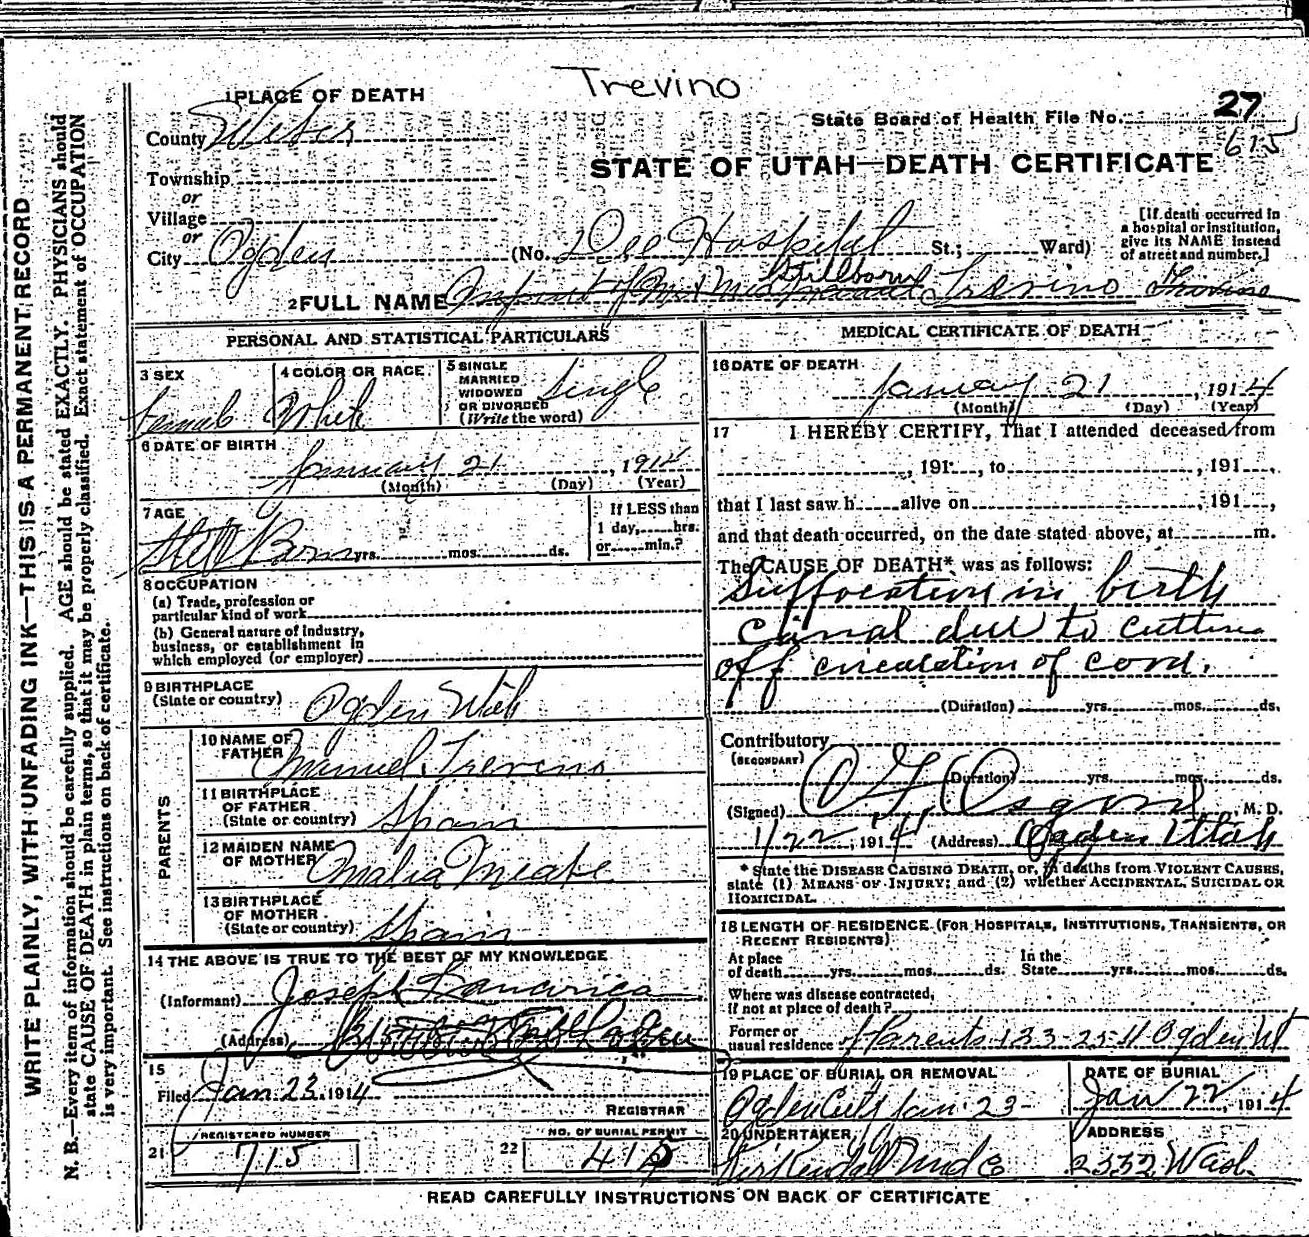 Trevino
1 PLACE OF DEATH
State Board of Health File No. 27
615
County Weber
STATE OF UTAH—DEATH CERTIFICATE
Township
or
Village
or
City Ogden (No. Dee Hospital St.; Ward)
[If death occurred in
a hospital or institution,
give its NAME instead
of street and number.]
Stillborn
2 FULL NAME Infant of Mr & Mrs Trevino
PERSONAL AND STATISTICAL PARTICULARS
3 SEX
Female
4 COLOR OR RACE
White
5 SINGLE
MARRIED
WIDOWED
OR DIVORCED
(Write the word)
Single
6 DATE OF BIRTH
January 21, 1914
(Month) (Day) (Year)
7 AGE
Still Born yrs. mos. ds.
If LESS than
1 day, hrs.
or min.?
8 OCCUPATION
(a) Trade, profession or
particular kind of work
(b) General nature of Industry,
business, or establishment in
which employed (or employer)
9 BIRTHPLACE
(State or country)
Ogden Utah
PARENTS
10 NAME OF
FATHER
Manuel Trevino
11 BIRTHPLACE
OF FATHER
(State or country)
Spain
12 MAIDEN NAME
OF MOTHER
Amalia
13 BIRTHPLACE
OF MOTHER
(State or country)
Spain
14 THE ABOVE IS TRUE TO THE BEST OF MY KNOWLEDGE
(Informant) Joseph
(Address)
15
Filed Jan 23, 1914
REGISTRAR
21
REGISTERED NUMBER
715
22
NO. OF BURIAL PERMIT
415
MEDICAL CERTIFICATE OF DEATH
16 DATE OF DEATH
January 21, 1914
(Month) (Day) (Year)
17 I HEREBY CERTIFY, That I attended deceased from
, 191 , to , 191 ,
that I last saw h alive on , 191 ,
and that death occurred, on the date stated above, at m.
The CAUSE OF DEATH* was as follows:
Suffocation in birth
canal due to cutting
off circulation of cord.
(Duration) yrs. mos. ds.
Contributory
(SECONDARY)
(Duration) yrs. mos. ds.
(Signed) Osgood M. D.
1/22, 1914 (Address) Ogden Utah
* State the DISEASE CAUSING DEATH, or, in deaths from VIOLENT CAUSES,
state (1) MEANS OF INJURY; and (2) whether ACCIDENTAL, SUICIDAL OR
HOMICIDAL.
18 LENGTH OF RESIDENCE (FOR HOSPITALS, INSTITUTIONS, TRANSIENTS, OR
RECENT RESIDENTS)
At place
of death yrs. mos. ds.
In the
State yrs. mos. ds.
Where was disease contracted,
if not at place of death?
Former or
usual residence of Parents 123-25 St Ogden Ut
19 PLACE OF BURIAL OR REMOVAL
Ogden City Jan 23-
DATE OF BURIAL
Jan 22, 1914
20 UNDERTAKER
Kirkendall Und Co
ADDRESS
2332 Wash.
READ CAREFULLY INSTRUCTIONS ON BACK OF CERTIFICATE
WRITE PLAINLY, WITH UNFADING INK—THIS IS A PERMANENT RECORD
N. B.—Every item of information should be carefully supplied. AGE should be stated EXACTLY. PHYSICIANS should
state CAUSE OF DEATH in plain terms, so that it may be properly classified. Exact statement of OCCUPATION
is very important. See instructions on back of certificate.